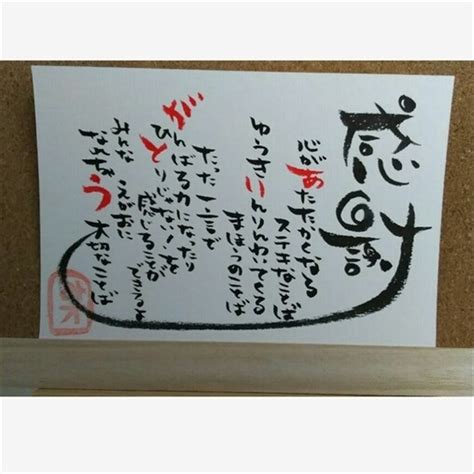 感謝
心があたたかくなる
ステキなことば
ゆうきりんりんわいてくる
まほうのことば
たった一言で
がんばる力になったり
ひとりじゃない!を
感じることができるよ
みんな えがおに
う 大切なことば